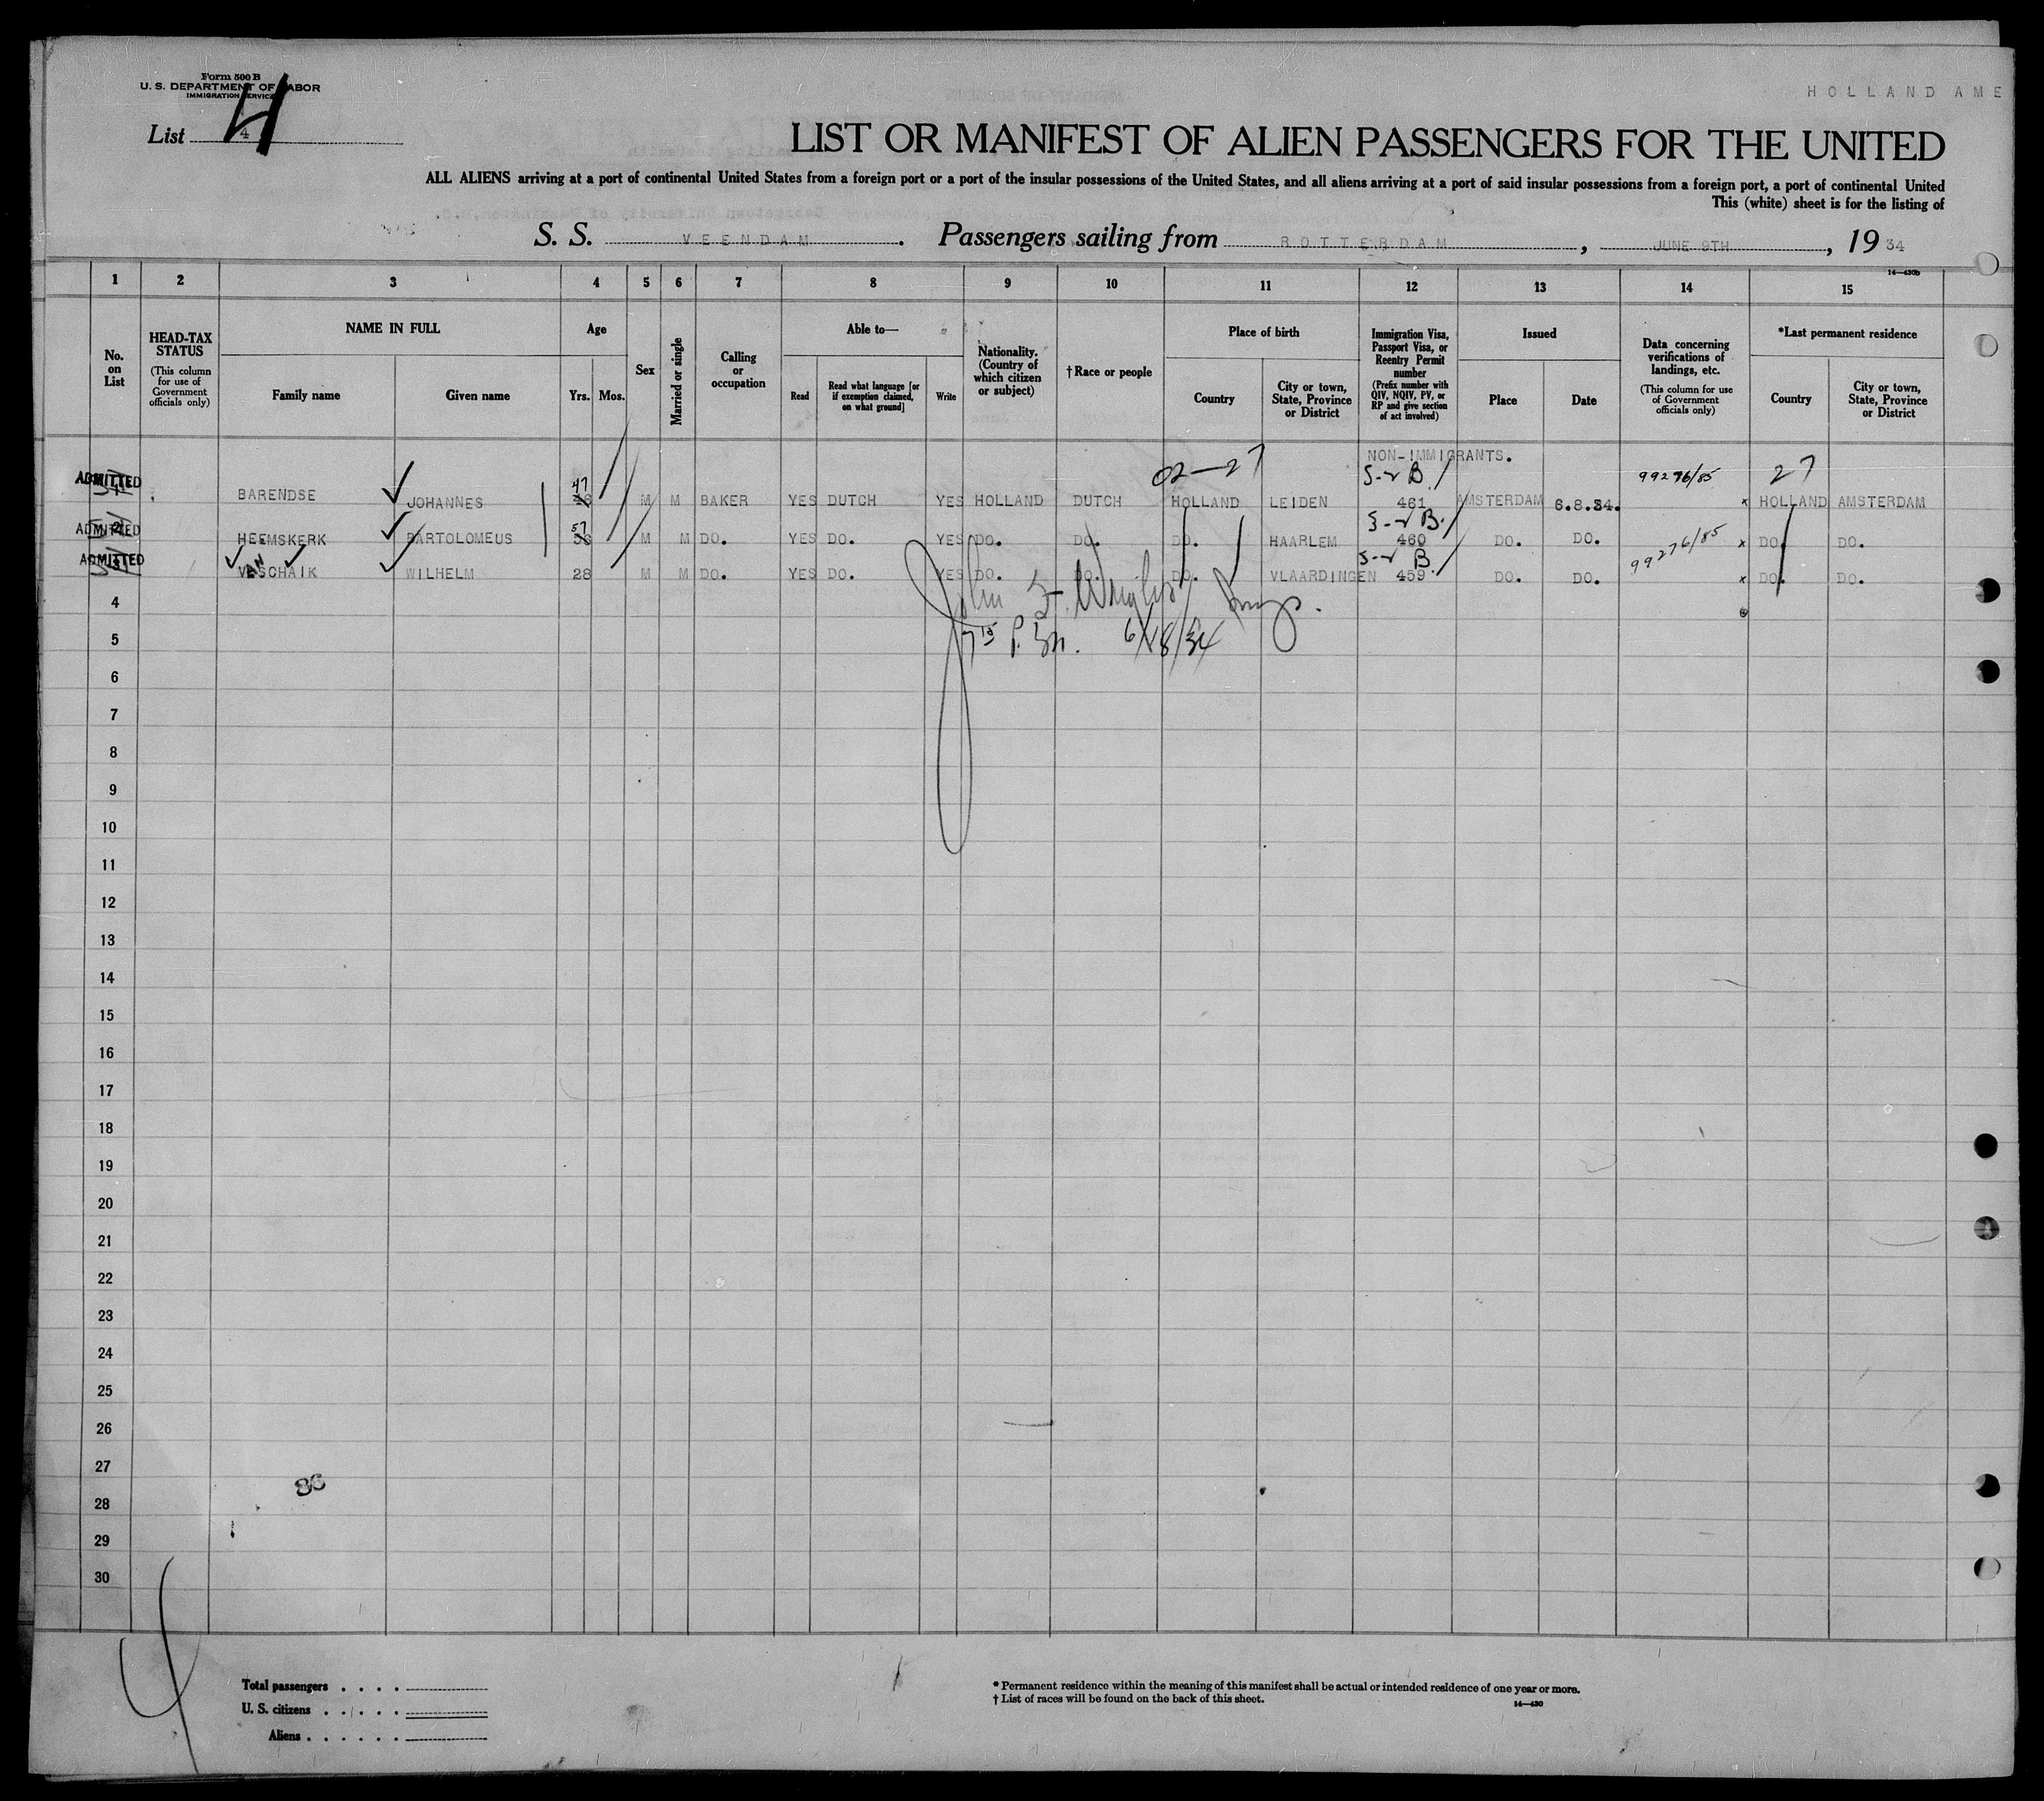 Form 500 B
U. S. DEPARTMENT OF LABOR
IMMIGRATION SERVICE
HOLLAND AME
List 4
4
LIST OR MANIFEST OF ALIEN PASSENGERS FOR THE UNITED
ALL ALIENS arriving at a port of continental United States from a foreign port or a port of the insular possessions of the United States, and all aliens arriving at a port of said insular possessions from a foreign port, a port of continental United
This (white) sheet is for the listing of
S. S. VEENDAM. Passengers sailing from ROTTERDAM, JUNE 9TH, 19 34
14—430b
1 2 3 4 5 6 7 8 9 10 11 12 13 14 15
No. on List
HEAD-TAX STATUS (This column for use of Government officials only)
NAME IN FULL Family name Given name
Age Yrs. Mos.
Sex
Married or single
Calling or occupation
Able to— Read Read what language [or if exemption claimed, on what ground] Write
Nationality. (Country of which citizen or subject)
† Race or people
Place of birth Country City or town, State, Province or District
Immigration Visa, Passport Visa, or Reentry Permit number (Prefix number with QIV, NQIV, PV, or RP and give section of act involved)
Issued Place Date
Data concerning verifications of landings, etc. (This column for use of Government officials only)
*Last permanent residence Country City or town, State, Province or District
NON-IMMIGRANTS.
02-27 99276/85 27
ADMITTED BARENDSE JOHANNES 47 M M BAKER YES DUTCH YES HOLLAND DUTCH HOLLAND LEIDEN 461 AMSTERDAM 6.8.34. x HOLLAND AMSTERDAM
ADMITTED HEEMSKERK BARTOLOMEUS 57 M M DO. YES DO. YES DO. DO. DO. HAARLEM 460 DO. DO. 99276/85 x DO. DO.
ADMITTED VAN SCHAIK WILHELM 28 M M DO. YES DO. YES DO. DO. DO. VLAARDINGEN 459 DO. DO. x DO. DO.
4
5 6/18/34
6
7
8
9
10
11
12
13
14
15
16
17
18
19
20
21
22
23
24
25
26
27
86
28
29
30
Total passengers . . . .
U. S. citizens . . . . .
Aliens . . . . . .
* Permanent residence within the meaning of this manifest shall be actual or intended residence of one year or more.
† List of races will be found on the back of this sheet.
14—430